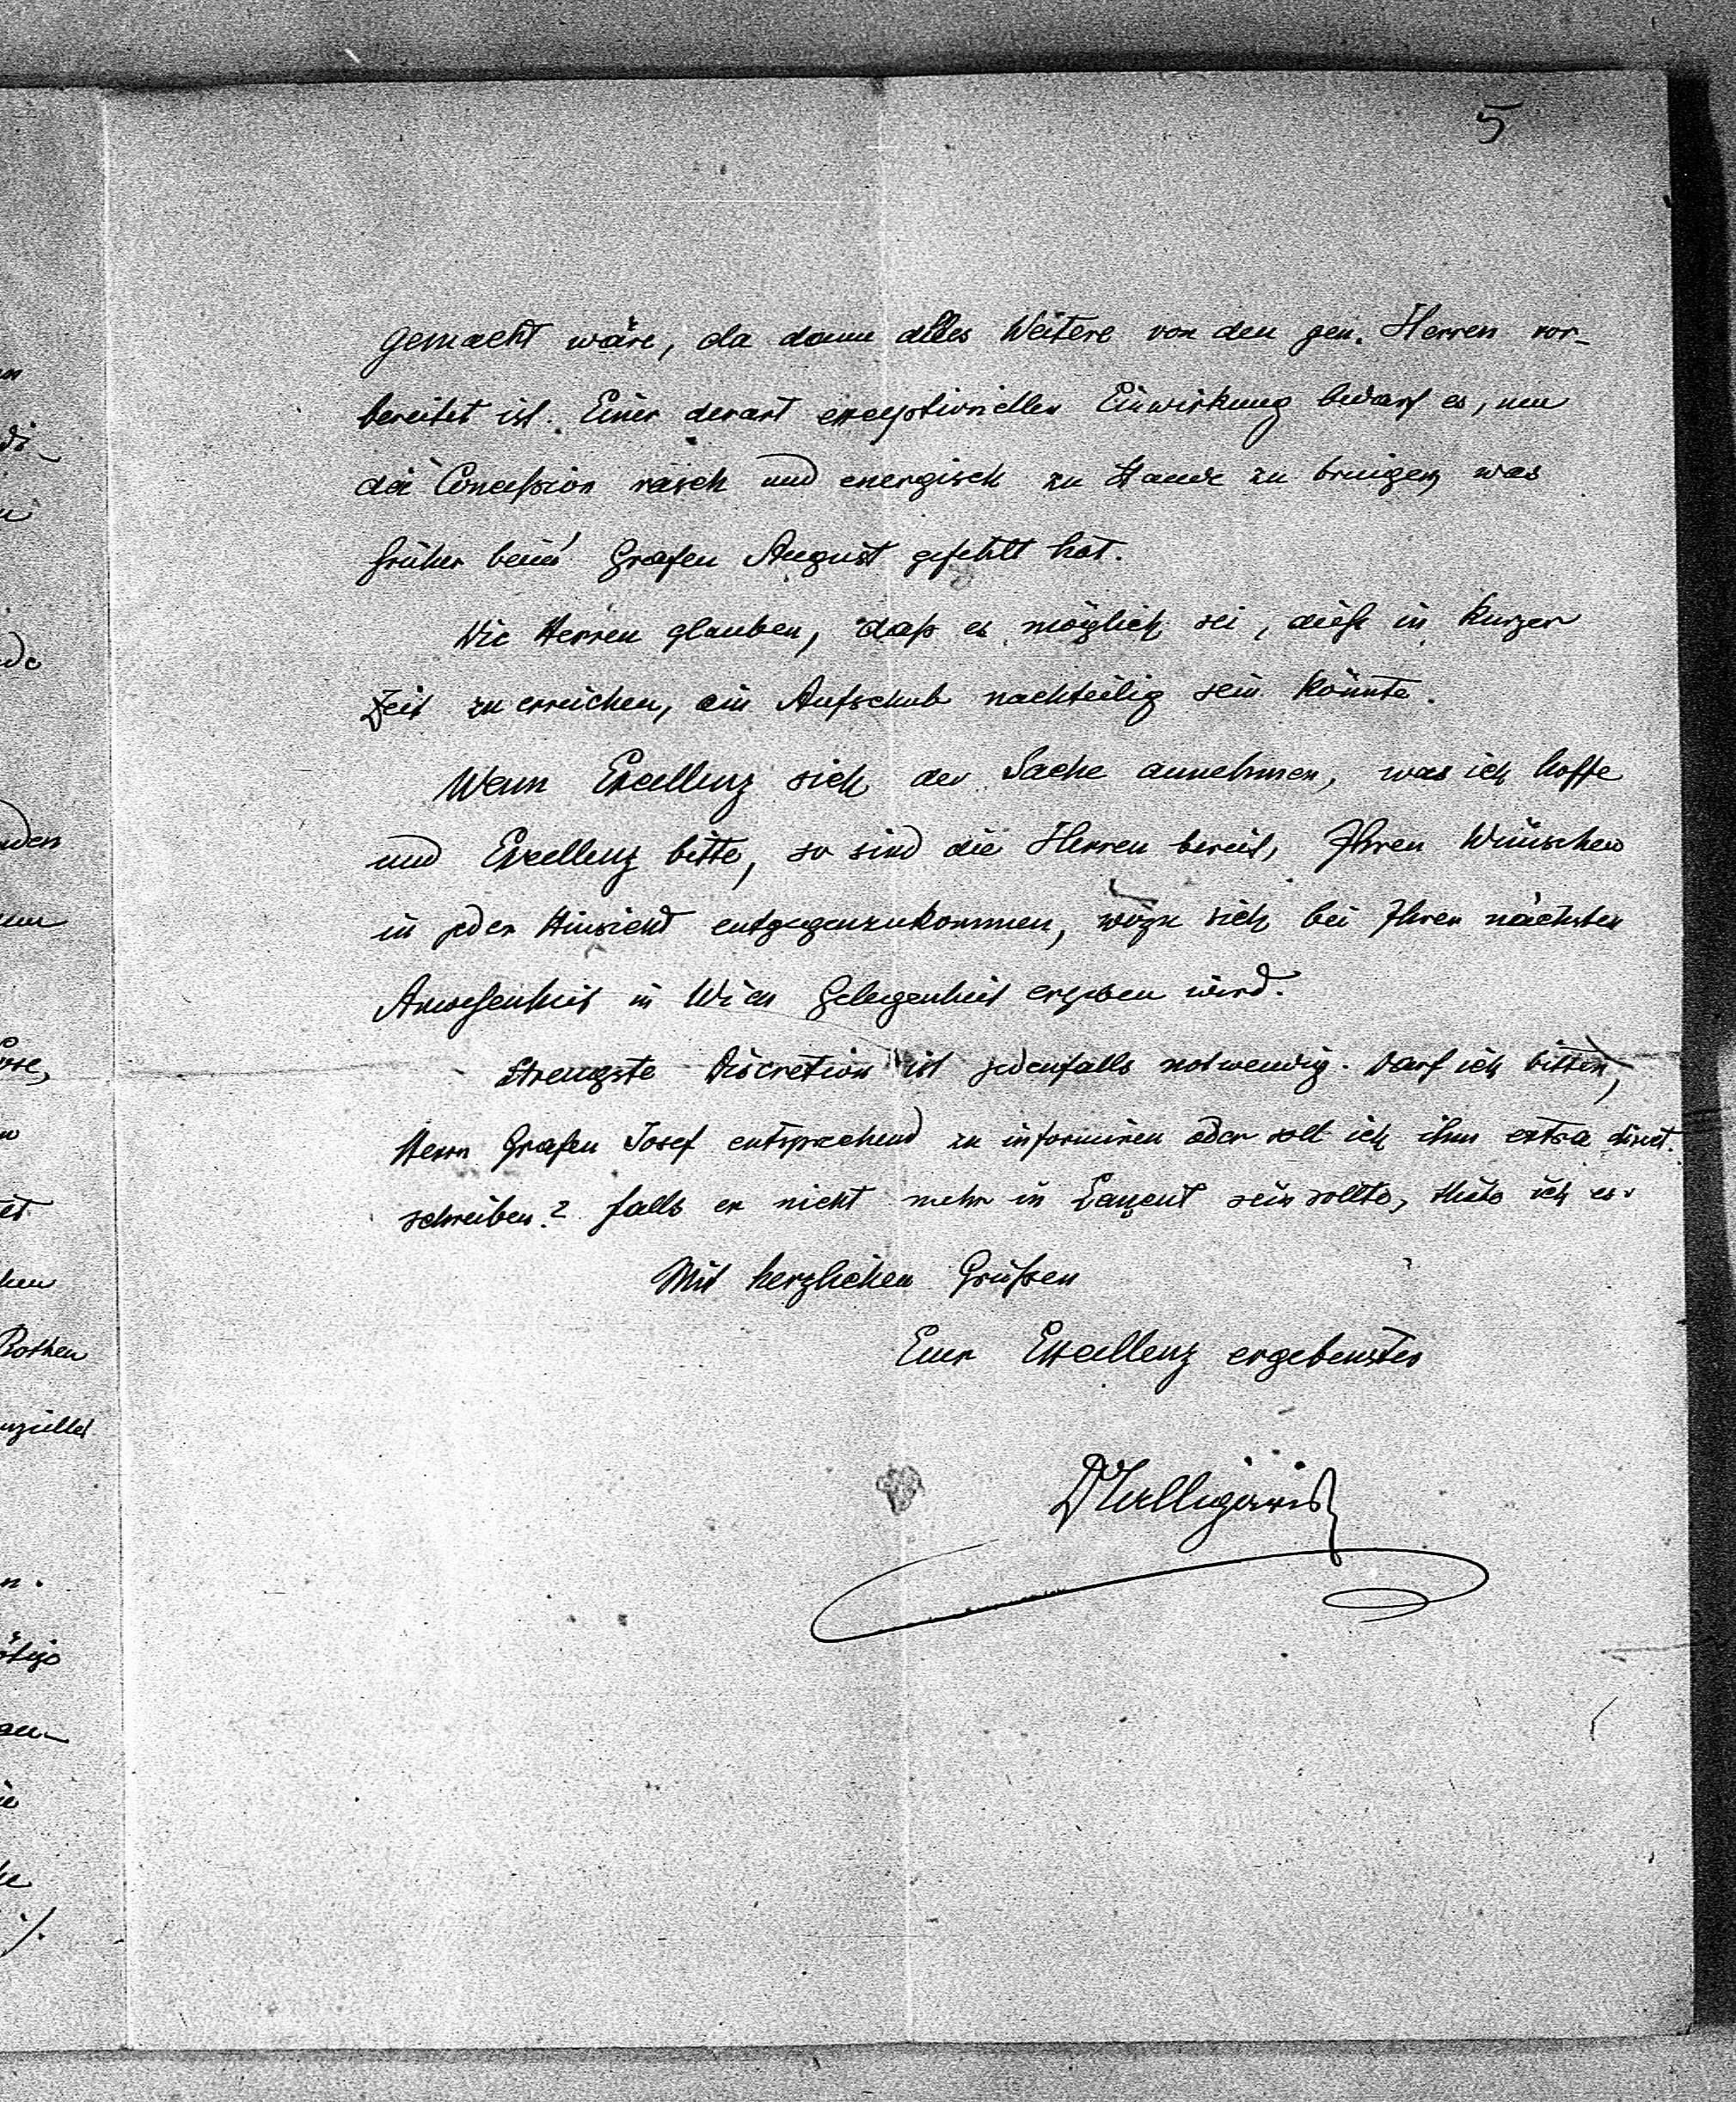 5
gemacht wäre, da dann alles Weitere von den gen. Herren vor-
bereitet ist. Einer derart exceptionellen Einwirkung bedarf es, um
die Concession rasch und energisch zu Stande zu bringen, was
früher beim Grafen August gefehlt hat.
Die Herren glauben, daß es möglich sei, dieß in kurzer
Zeit zu erreichen, ein Aufschub nachteilig sein könnte.
Wenn Excellenz sich der Sache annehmen, was ich hoffe
und Excellenz bitte, so sind die Herren bereit, Ihren Wünschen
in jeder Hinsicht entgegenzukommen, wozu sich bei Ihrer nächsten
Anwesenheit in Wien Gelegenheit ergeben wird.
Strengste Discretion ist jedenfalls notwendig. Darf ich bitten,
Herrn Grafen Josef entsprechend zu informiren oder soll ich ihm extra direct.
schreiben? falls er nicht mehr in sein sollte, thäte ich es.
Mit herzlichen Grüßen
Euer Excellenz ergebenster